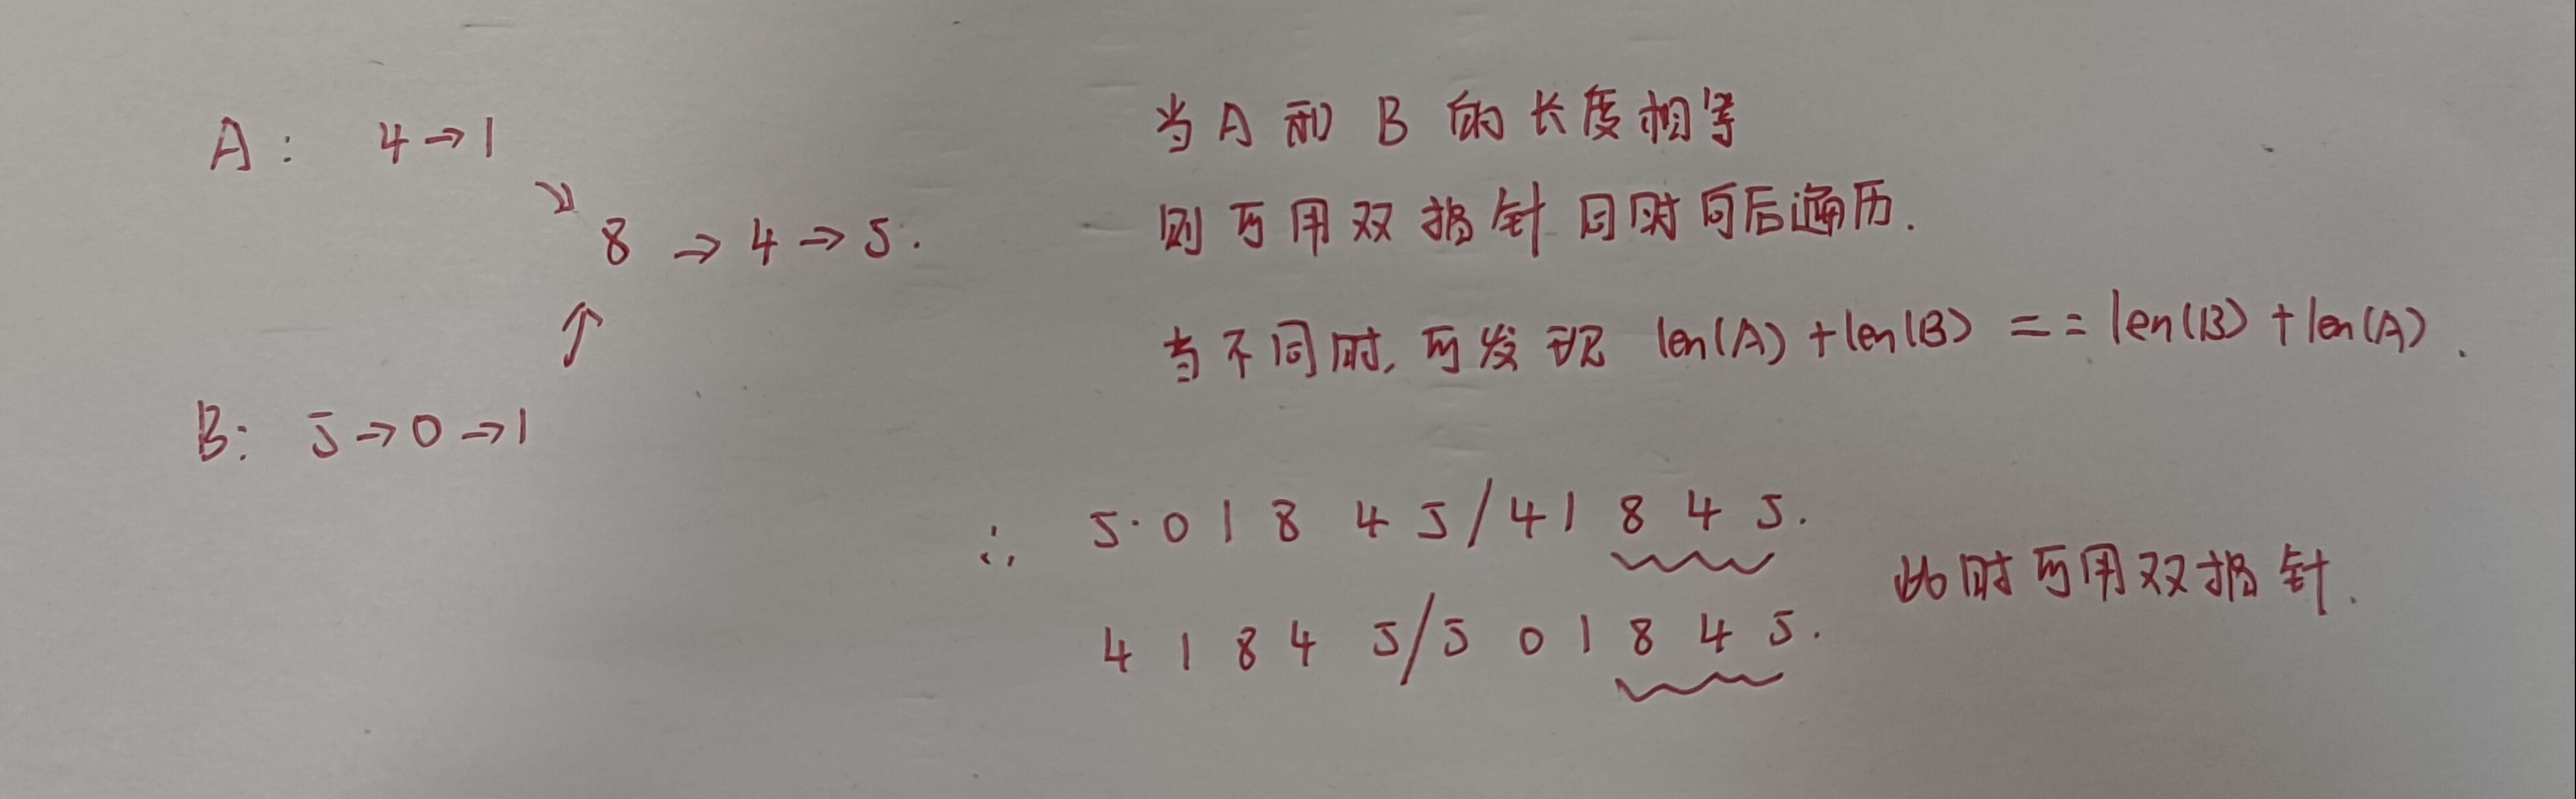 A: 4→1
↘
8→4→5.
↗
B: 5→0→1
当A和B的长度相等
则可用双指针同时向后遍历.
当不同时,可发现 len(A)+len(B)==len(B)+len(A).
∴ 5·01845/41845.
41845/501845.
此时可用双指针.